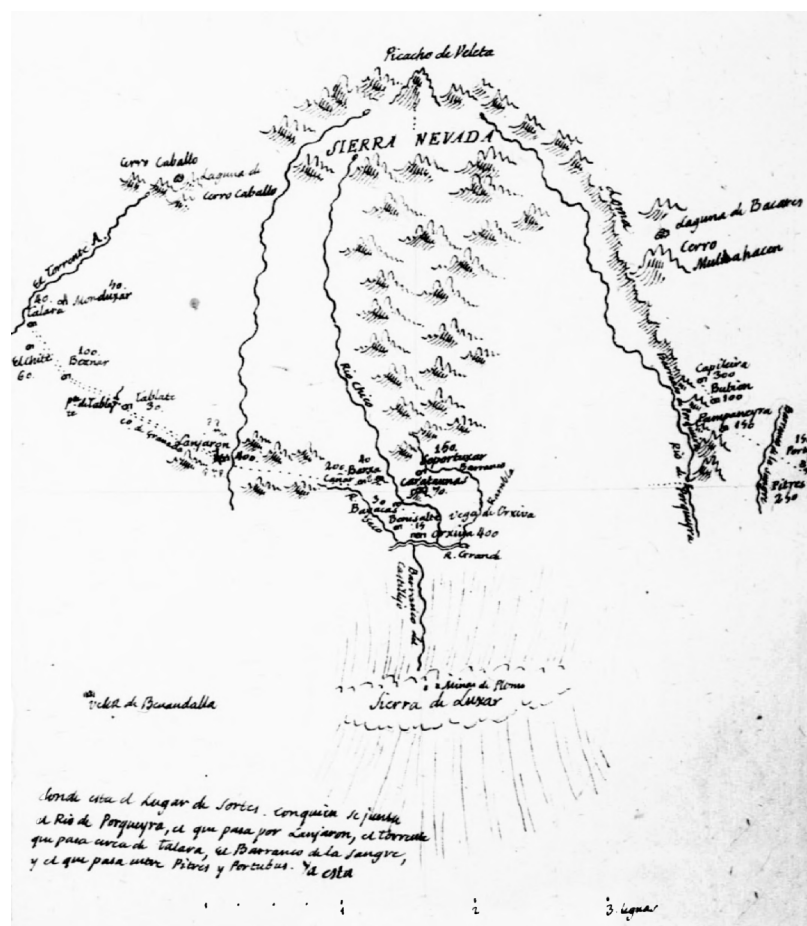 Picacho de Veleta
SIERRA NEVADA
Cerro Caballo
Laguna de
Cerro Caballo
Loma
Laguna de Bacares
Cerro
Mulhahacen
El Torrente A.
40.
Talara
40.
Monduxar
El Chite
60.
100.
Beznar
Tablate
30.
co de Granada
Lanjaron
400
Rio Chico
Capileira
300
Bubion
100
Pampaneyra
150
Rio de Porqueyra
Pitres
250
200
Cañar
40
Barxa
160.
Soportuxar
Barranco
Rambla
Carataunas
70.
30
Bayacas
Seco
Benisalte
15
Vega de Orxiva
Orxiva 400
R. Grande
Barranco del
Castillejo
Minas de Plomo
Sierra de Luxar
Velez de Benaudalla
donde esta el Lugar de Sortes. Conquien se junta
el Rio de Porqueyra, el que pasa por Lanjaron, el Torrente
que pasa cerca de Talara, el Barranco de la Sangre,
y el que pasa entre Pitres y Portubus. Ya esta
1
2
3. leguas